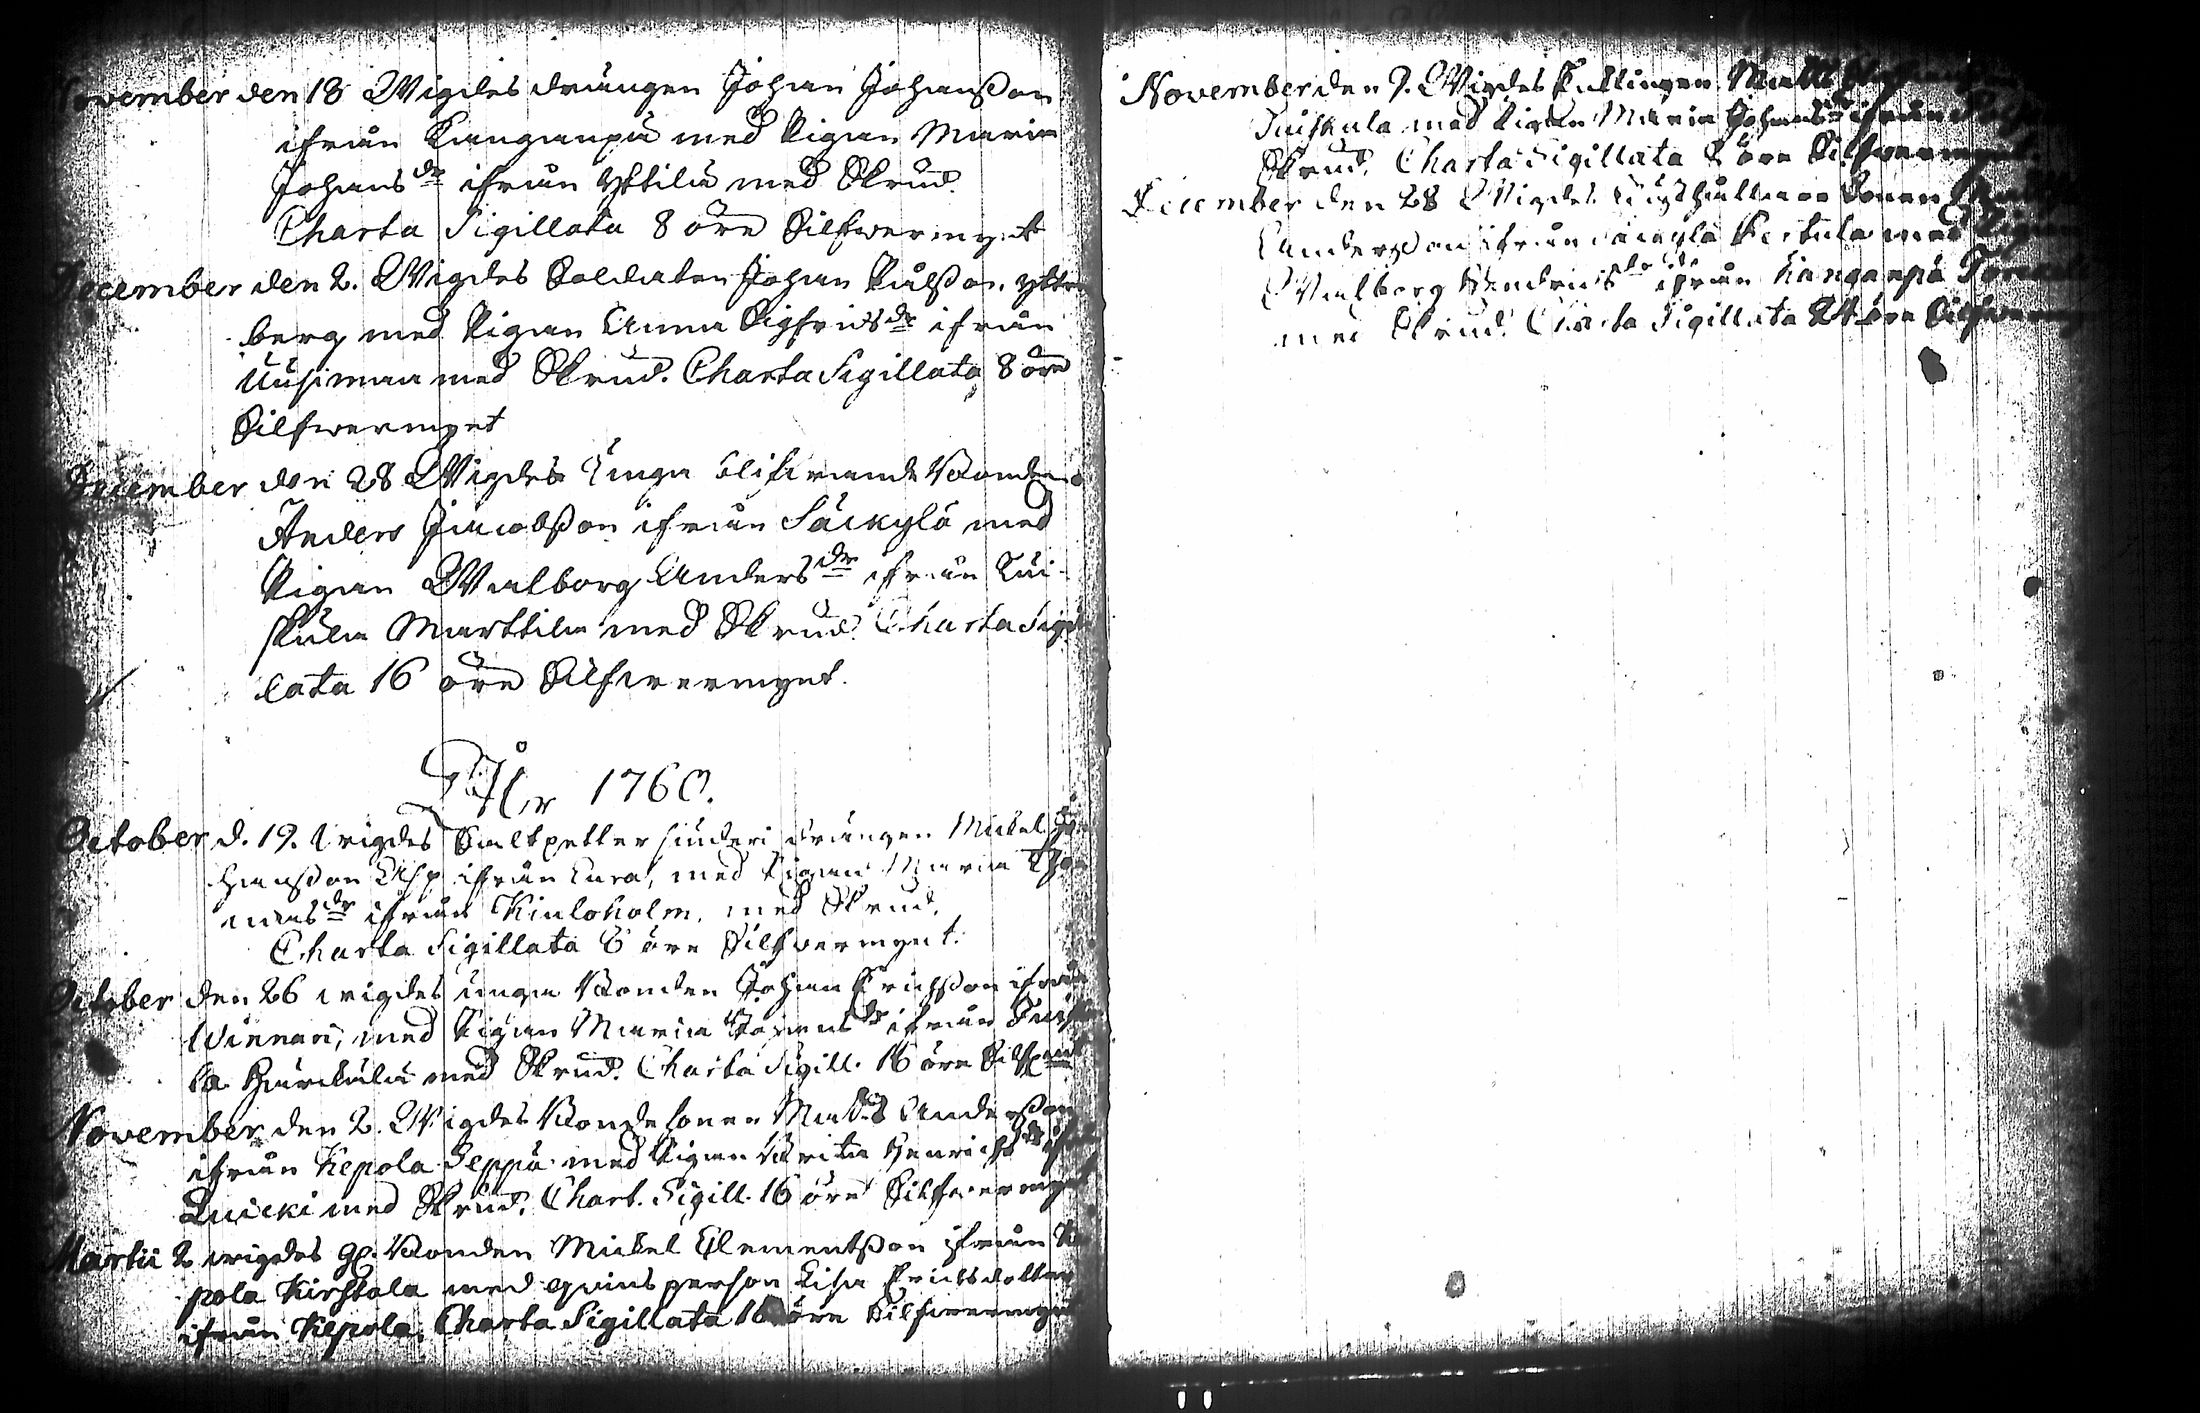 November den 18 Wigdes drängen Johan Johansson
ifrån Kanganpä med Pigan Maria
Johans dr ifrån Yttilä med Skrud.
Charta Sigillata 8 öre Silfwermynt
December den 2. Wigdes Soldaten Johan Påhlsson Ytter
berg med Pigan Anna Sigfrids dr ifrån
Uusimaa med Skrud. Charta Sigillata 8 öre
Silfwermynt
December den 28 Wigdes Unga blifwande Bonden
Anders Jacobsson ifrån Säckylä med
Pigan Walborg Anders dr ifrån Tui-
skula Marttila med Skrud. Charta Sigil
lata 16 öre Silfwermynt.
År 1760.
October d. 19. wigdes Saltpetter siuderi drängen Mickel Jo
hansson Asp ifrån Eura, med Pigan Maria Tho
mas dr ifrån Kiuloholm, med Skrud.
Charta Sigillata 8 öre Silfwermynt.
October den 26 wigdes unga Bonden Johan Erichsson ifrån
Winnari, med Pigan Maria Johans dr ifrån Tuisku
la Härckälä med Skrud. Charta Sigill. 16 öre Silf mt
November den 2. Wigdes Bondesonen Matts Andersson
ifrån Kepola Seppä med Pigan Brita Henrichs dr ifrån
Luicki med Skrud. Chart. Sigill. 16 öre Silfwermynt
Martii 2 wigdes gl. Bonden Mickel Clementsson ifrån Ke
pola Kirstala med qwins person Lisa Erichsdotter
ifrån Kepola, Charta Sigillata 16 öre Silfwermynt
November den 9. Wigdes Matts
Tuiskula med Pigan Maria Johans dr ifrån
Skrud. Charta Sigillata 8 öre Silfwermynt
December den 28 Wigdes Sonen
Andersson ifrån Säckylä Pertula med Pigan
Walborg Hendrics dr ifrån Kanganpä
med Skrud. Charta Sigillata 24 öre Silfwermynt